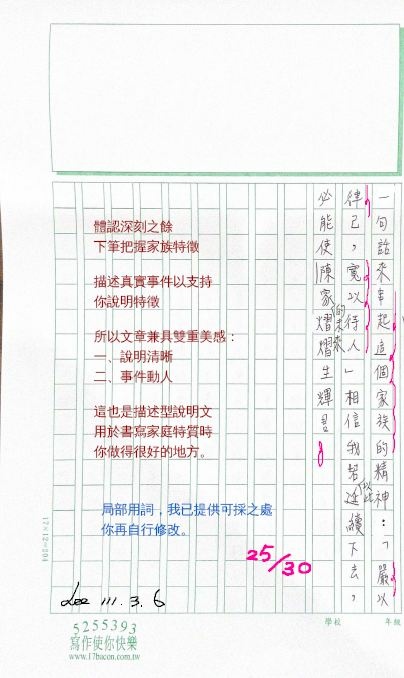 一句話來串起這個家族的精神：「嚴以
律己，寬以待人」相信我若以此延續下去，
必能使陳家的未來熠熠生輝
體認深刻之餘
下筆把握家族特徵
描述真實事件以支持
你說明特徵
所以文章兼具雙重美感：
一、說明清晰
二、事件動人
這也是描述型說明文
用於書寫家庭特質時
你做得很好的地方。
局部用詞，我已提供可採之處
你再自行修改。
25/30
Lee 111.3.6
17×12=204
學校
年級
5255393
寫作使你快樂
www.17bacon.com.tw